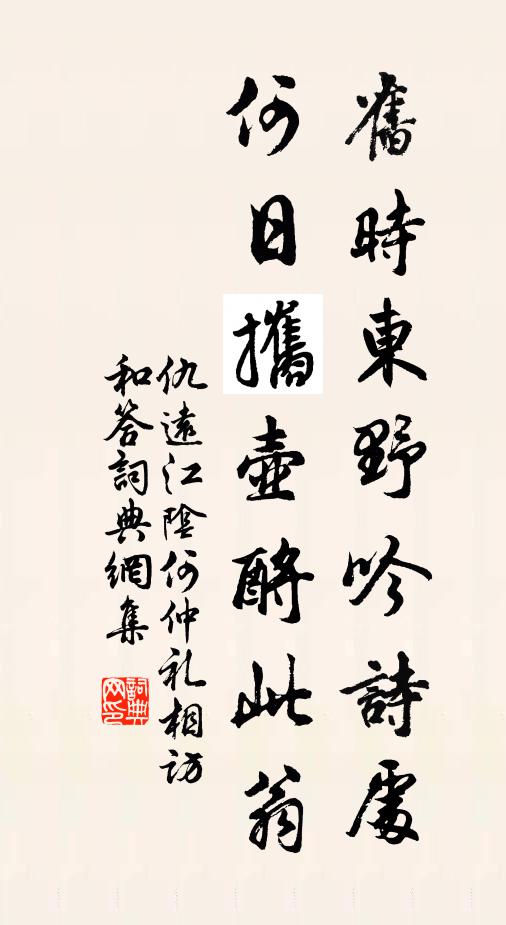 舊時東野吟詩處
何日攜壺酹此翁
仇遠江陰何仲礼相訪
和答詞典網集
詞典
网印